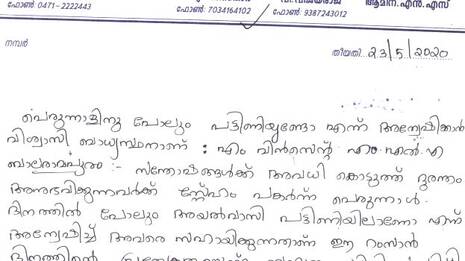 ഫോൺ: 0471-2222443 ഫോൺ: 7034164102 ഫോൺ: 9387243012 ആമിന.എൻ.എസ്
നമ്പർ തീയതി 23/5/2020
പെരുന്നാളിനു പോലും പട്ടിണിയുണ്ടോ എന്ന് അന്വേഷിക്കാൻ
വിശ്വാസി ബാധ്യസ്ഥനാണ് : എം വിൻസെന്റ് എം.എൽ.എ
ബാലരാമപുരം :- സന്തോഷങ്ങൾക്ക് അവധി കൊടുത്ത് ദുരന്തം
അനുഭവിക്കുന്നവർക്ക് സ്നേഹം പകർന്ന് പെരുന്നാൾ.
ദിനത്തിൽ പോലും അയൽവാസി പട്ടിണിയിലാണോ എന്ന്
അന്വേഷിച്ച് അവരെ സഹായിക്കുന്നതാണ് ഈ റംസാൻ
ദിനത്തിന്റെ